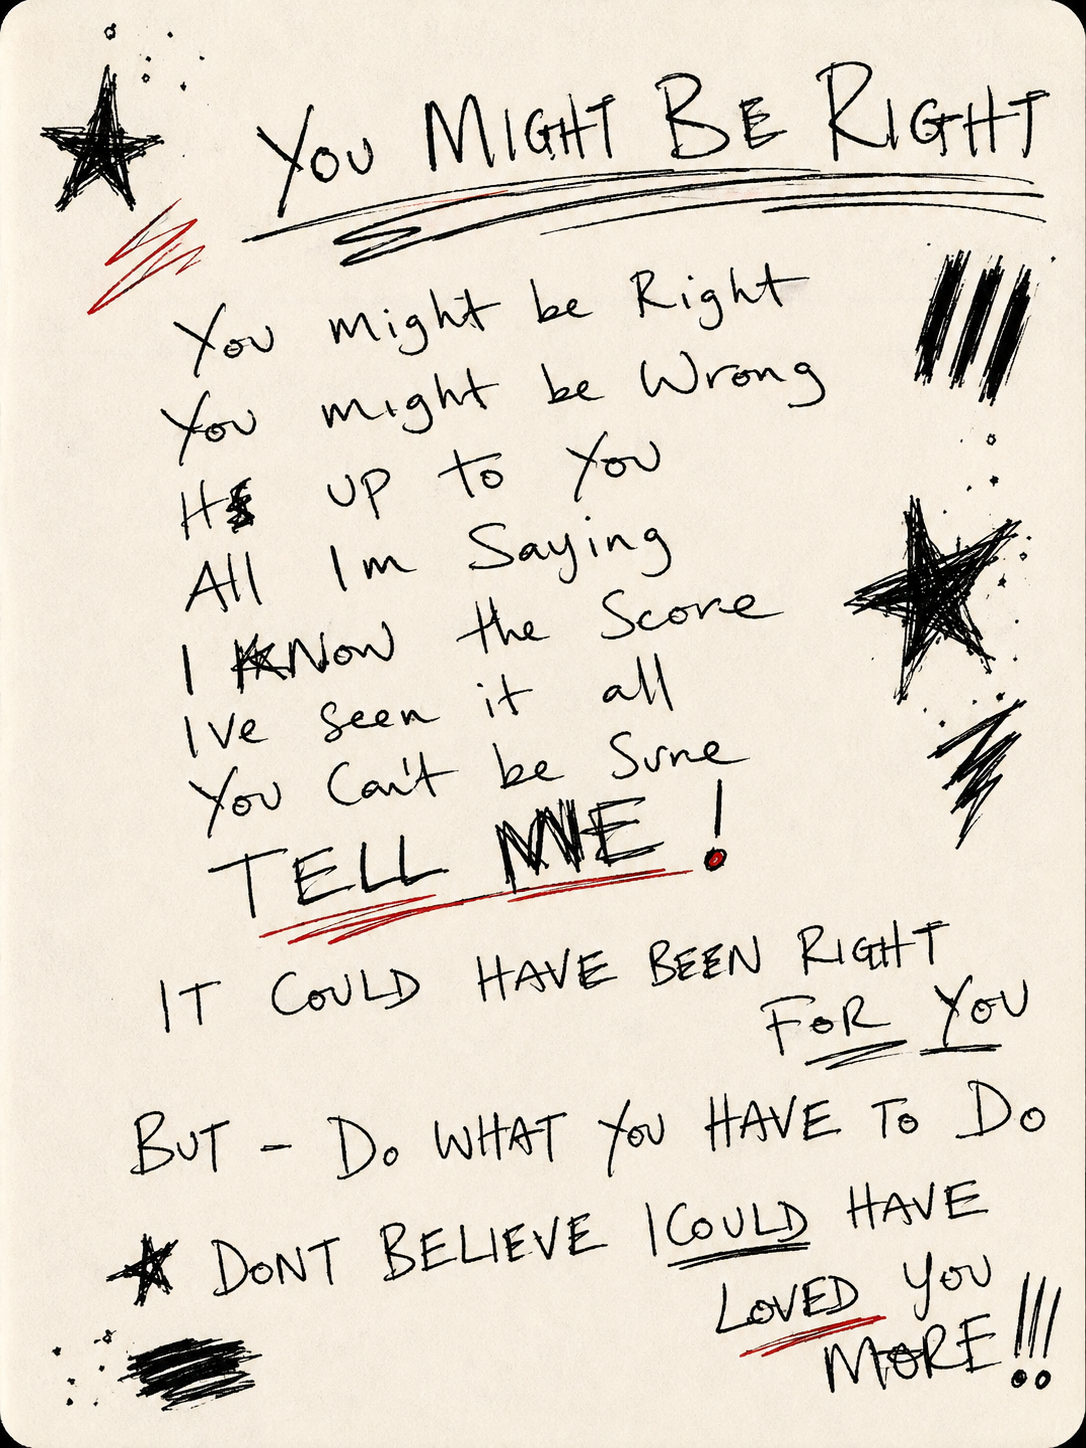 YOU MIGHT BE RIGHT
You might be Right
You might be Wrong
up to You
All Im Saying
I KNow the Score
Ive seen it all
You Can't be Sure
TELL ME !
IT COULD HAVE BEEN RIGHT
FOR YOU
BUT - DO WHAT YOU HAVE TO DO
DONT BELIEVE I COULD HAVE
LOVED YOU
MORE!!!